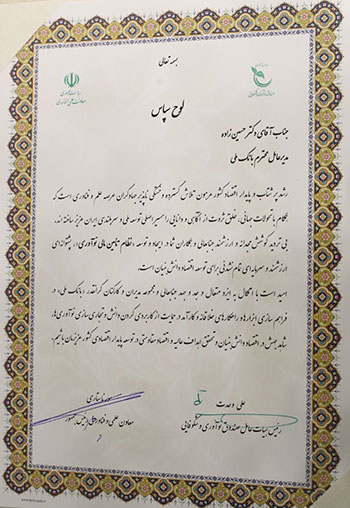 بسمه تعالی
ریاست جمهوری
معاونت علمی و فناوری
لوح سپاس
جناب آقای دکتر حسین زاده
مدیرعامل محترم بانک ملی
رشد پرشتاب و پایدار اقتصاد کشور مرهون تلاش گسترده و خستگی ناپذیر جهادگران عرصه علم و فناوری است که
همگام با تحولات جهانی، خلق ثروت از آگاهی و دانایی را مسیر اصلی توسعه ملی و سربلندی ایران عزیز ساخته‌اند.
بی تردید کوشش مجدانه و ارزشمند جنابعالی و همکاران شما در ایجاد و توسعه «نظام تامین مالی نوآوری»، پشتوانه‌ای
ارزشمند و سرمایه‌ای تمام نشدنی برای توسعه اقتصاد دانش بنیان است.
امید است با اتکال به ایزد متعال و جد و جهد جنابعالی و مجموعه مدیران و کارکنان گرانقدر «بانک ملی» در
فراهم سازی ابزارها و راهکارهای خلاقانه و کارآمد در حمایت از کاربردی کردن دانش و تجاری سازی نوآوری‌ها،
شاهد جهش در اقتصاد دانش بنیان و تحقق اهداف عالیه و اقتصاد مقاومتی در توسعه پایدار اقتصادی کشور عزیزمان باشیم.
علی وحدت
رئیس هیات عامل صندوق نوآوری و شکوفایی
سورنا ستاری
معاون علمی و فناوری رئیس جمهور